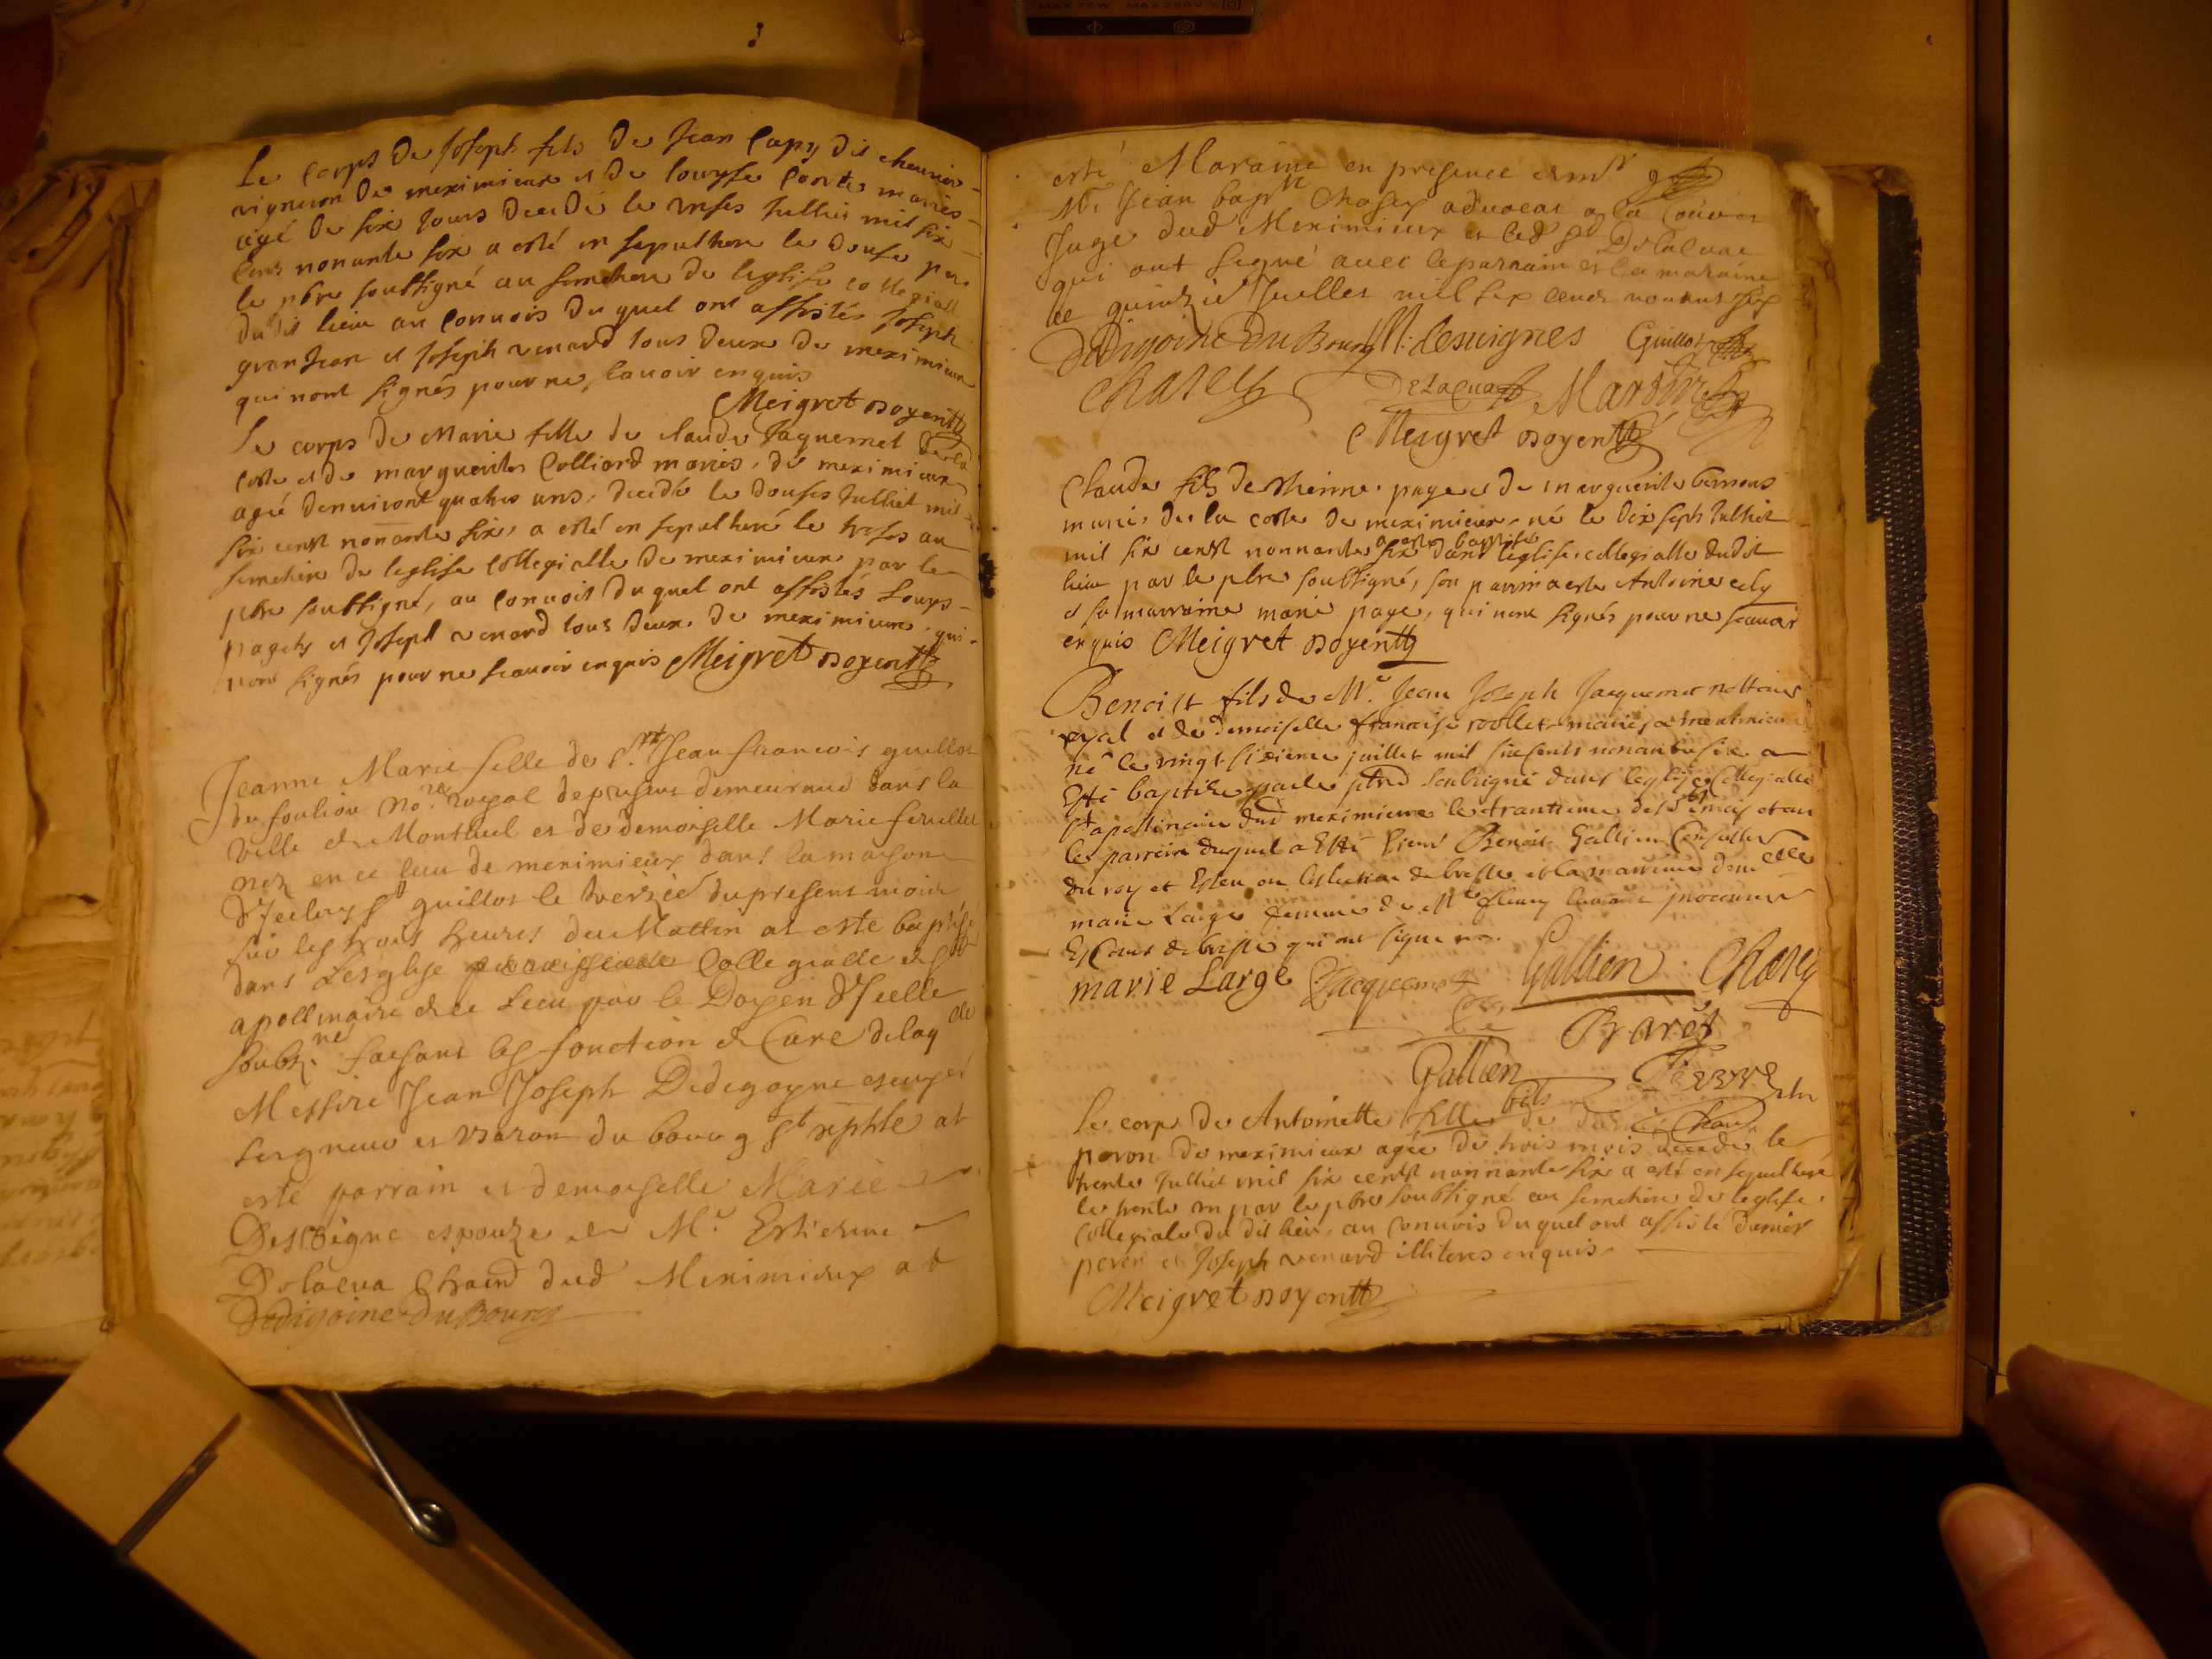 Le corps de Joseph fils de Jean Capy dit chevrier
vigneron de meximieux et de louyse Conte mariés
agé de six jours decedé le unses Julliet mil six
cents nonante six a esté en sepulthuré le douse par
le pbre soubsigné au semetiere de leglise collegialle
du dit lieu au convois du quel ont assistés Joseph
granjean et Joseph venard tous deux de meximieux
qui nont signés pour ne scavoir enquis
Meigret doyen
Le corps de Marie fille de claude Jaquemet de la
coste et de marguerite Colliard mariés, de meximieux
agée denviront quatre ans, decedée le douses Julliet mil
six censt nonante six, a esté en sepulthuré le treses au
semetiere de leglise Collegialle de meximieux par le
pbre soubsigné, au convois du quel ont assistés Louys
pagets et Joseph venard tous deux de meximieux qui
nont signés pour ne scavoir enquis Meigret doyen
Jeanne Marie fille de Sr Jean francois guillot
du foulion No.re royal de present demeurand dans la
ville de Montluel et de demoiselle Marie
nez en ce lieu de meximieux dans la maison
d'Iceluy Sr guillot le treizie du present mois
sur les trois heures du Mattin at esté baptisé
dans Lesglise Collegialle de St
apollinaire de ce Lieu par le Doyen d'Icelle
soubz.né faisant les fonction de Curé delaq.lle
Messire Jean Joseph Dedigoyne escuyer
seigneur et Baron du bourg St at
esté parrain et demoiselle Marie
Desvigne espouze de Mr Estienne
Delacua Chaird dud Meximieux at
Dedigoine Du Bourg
esté Maraine en presence de
Mr Jean bapte Charey advocat a la Cour et
Juge dud Meximieux et led Sr Delacuae
qui ont signé avec le parrain et la maraine
ce quinzie Juellet mil six cents nonant six
Dedigoine Du Bourg M. desuignes Guillot
Charey Delacua Martin
Meigret doyen
Claude fils de thienne page et de marguerite bernons
maries de la coste de meximieux né le dix sept Julliet
mil six censt nonnante six a este baptisé dans leglise collegialle dudit
lieu par le pbre soubsigné, son parrin a este Antoine cely
et sa marraine marie page, qui nont signés pour ne scavoir
enquis Meigret doyen
Benoist fils de Me Jean Joseph Jacquemet nottaire
royal et de demoiselle francoise rollet mariés a meximieux
né le vingt sixieme juillet mil six cents nonante six a
Esté baptize par le pbre soubsigné dans leglise Collegialle
St apollinaire dud meximieux le trantieme desd mois et an
le parrein duquel a Esté Sieur Benoit Gallien Conseiller
du roy et Esleu en leslection de bresse et la marreine dem.elle
marie Large femme de Me fleury procureur
Es Cours de bresse qui ont signe
marie Large Jacquemet Gallien Charey
Bravet
Gallien fils Favre
Le corp de Antoinette fille de
peron de meximieux agée de trois mois decedée le
trente Julliet mil six censt nonnante six a esté en sepulthuré
le trente un par le pbre soubsigné au semetiere de leglise
Collegiale du dit lieu, au convois du quel ont assisté
peron et Joseph venard illiteres enquis
Meigret doyen